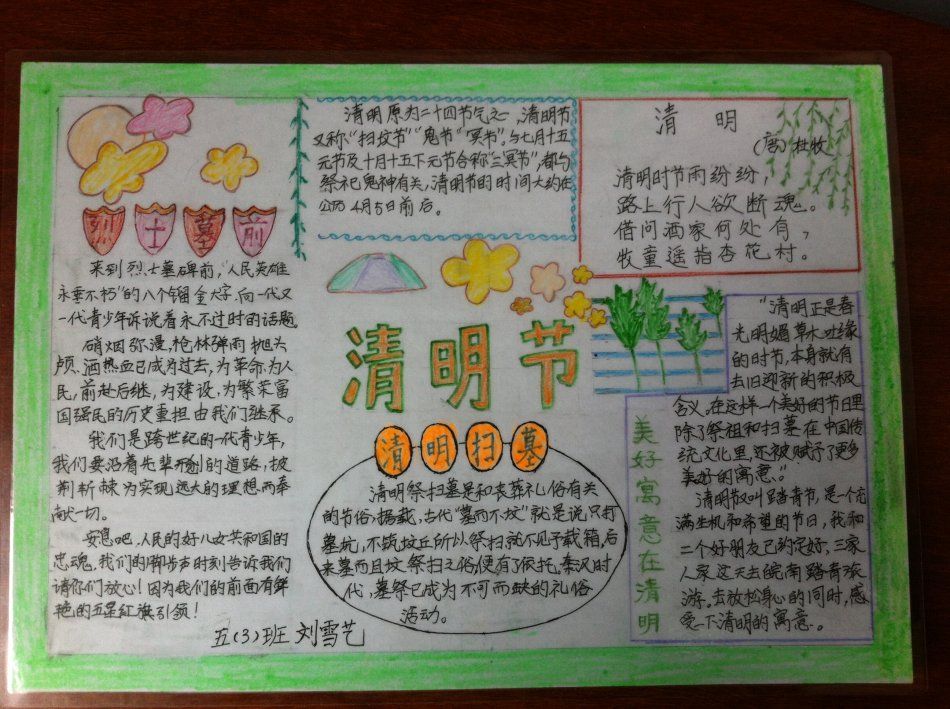 烈士墓前
来到烈士墓碑前，“人民英雄
永垂不朽”的八个镏金大字.向一代又
一代青少年诉说着永不过时的话题。
硝烟弥漫，枪林弹雨抛头
颅、洒热血已成为过去，为革命，为人
民，前赴后继，为建设，为繁荣富
国强民的历史重担由我们继承。
我们是跨世纪的一代青少年，
我们要沿着先辈开创的道路，披
荆斩棘为实现远大的理想而奉
献一切。
安息吧，人民的好儿女共和国的
忠魂，我们的脚步声时刻告诉我们
请你们放心！因为我们的前面有鲜
艳的五星红旗引领！
五(3)班 刘雪艺
清明原为二十四节气之一，清明节
又称“扫坟节”“鬼节”“冥节”。与七月十五
元节及十月十五下元节合称“三冥节”，都与
祭祀鬼神有关，清明节的时间大约在
公历4月5日前后。
清明
(唐)杜牧
清明时节雨纷纷，
路上行人欲断魂。
借问酒家何处有，
牧童遥指杏花村。
清明节
清明扫墓
清明祭扫墓是和丧葬礼俗有关
的节俗，据载，古代“墓而不坟”就是说只打
墓坑，不筑坟丘所以祭扫就不见于载籍，后
来墓而且坟，祭扫之俗便有了依托，秦汉时
代，墓祭已成为不可而缺的礼俗
活动。
美好寓意在清明
“清明正是春
光明媚草木吐缘
的时节，本身就有
去旧迎新的积极
含义。在这样一个美好的节日里
除了祭祖和扫墓在中国传
统文化里，还被赋予了更多
美好的寓意。”
清明节又叫踏青节，是一个充
满生机和希望的节日，我和
二个好朋友已约定好，三家
人家这天去皖南踏青旅
游。去放松身心的同时，感
受一下清明的寓意。